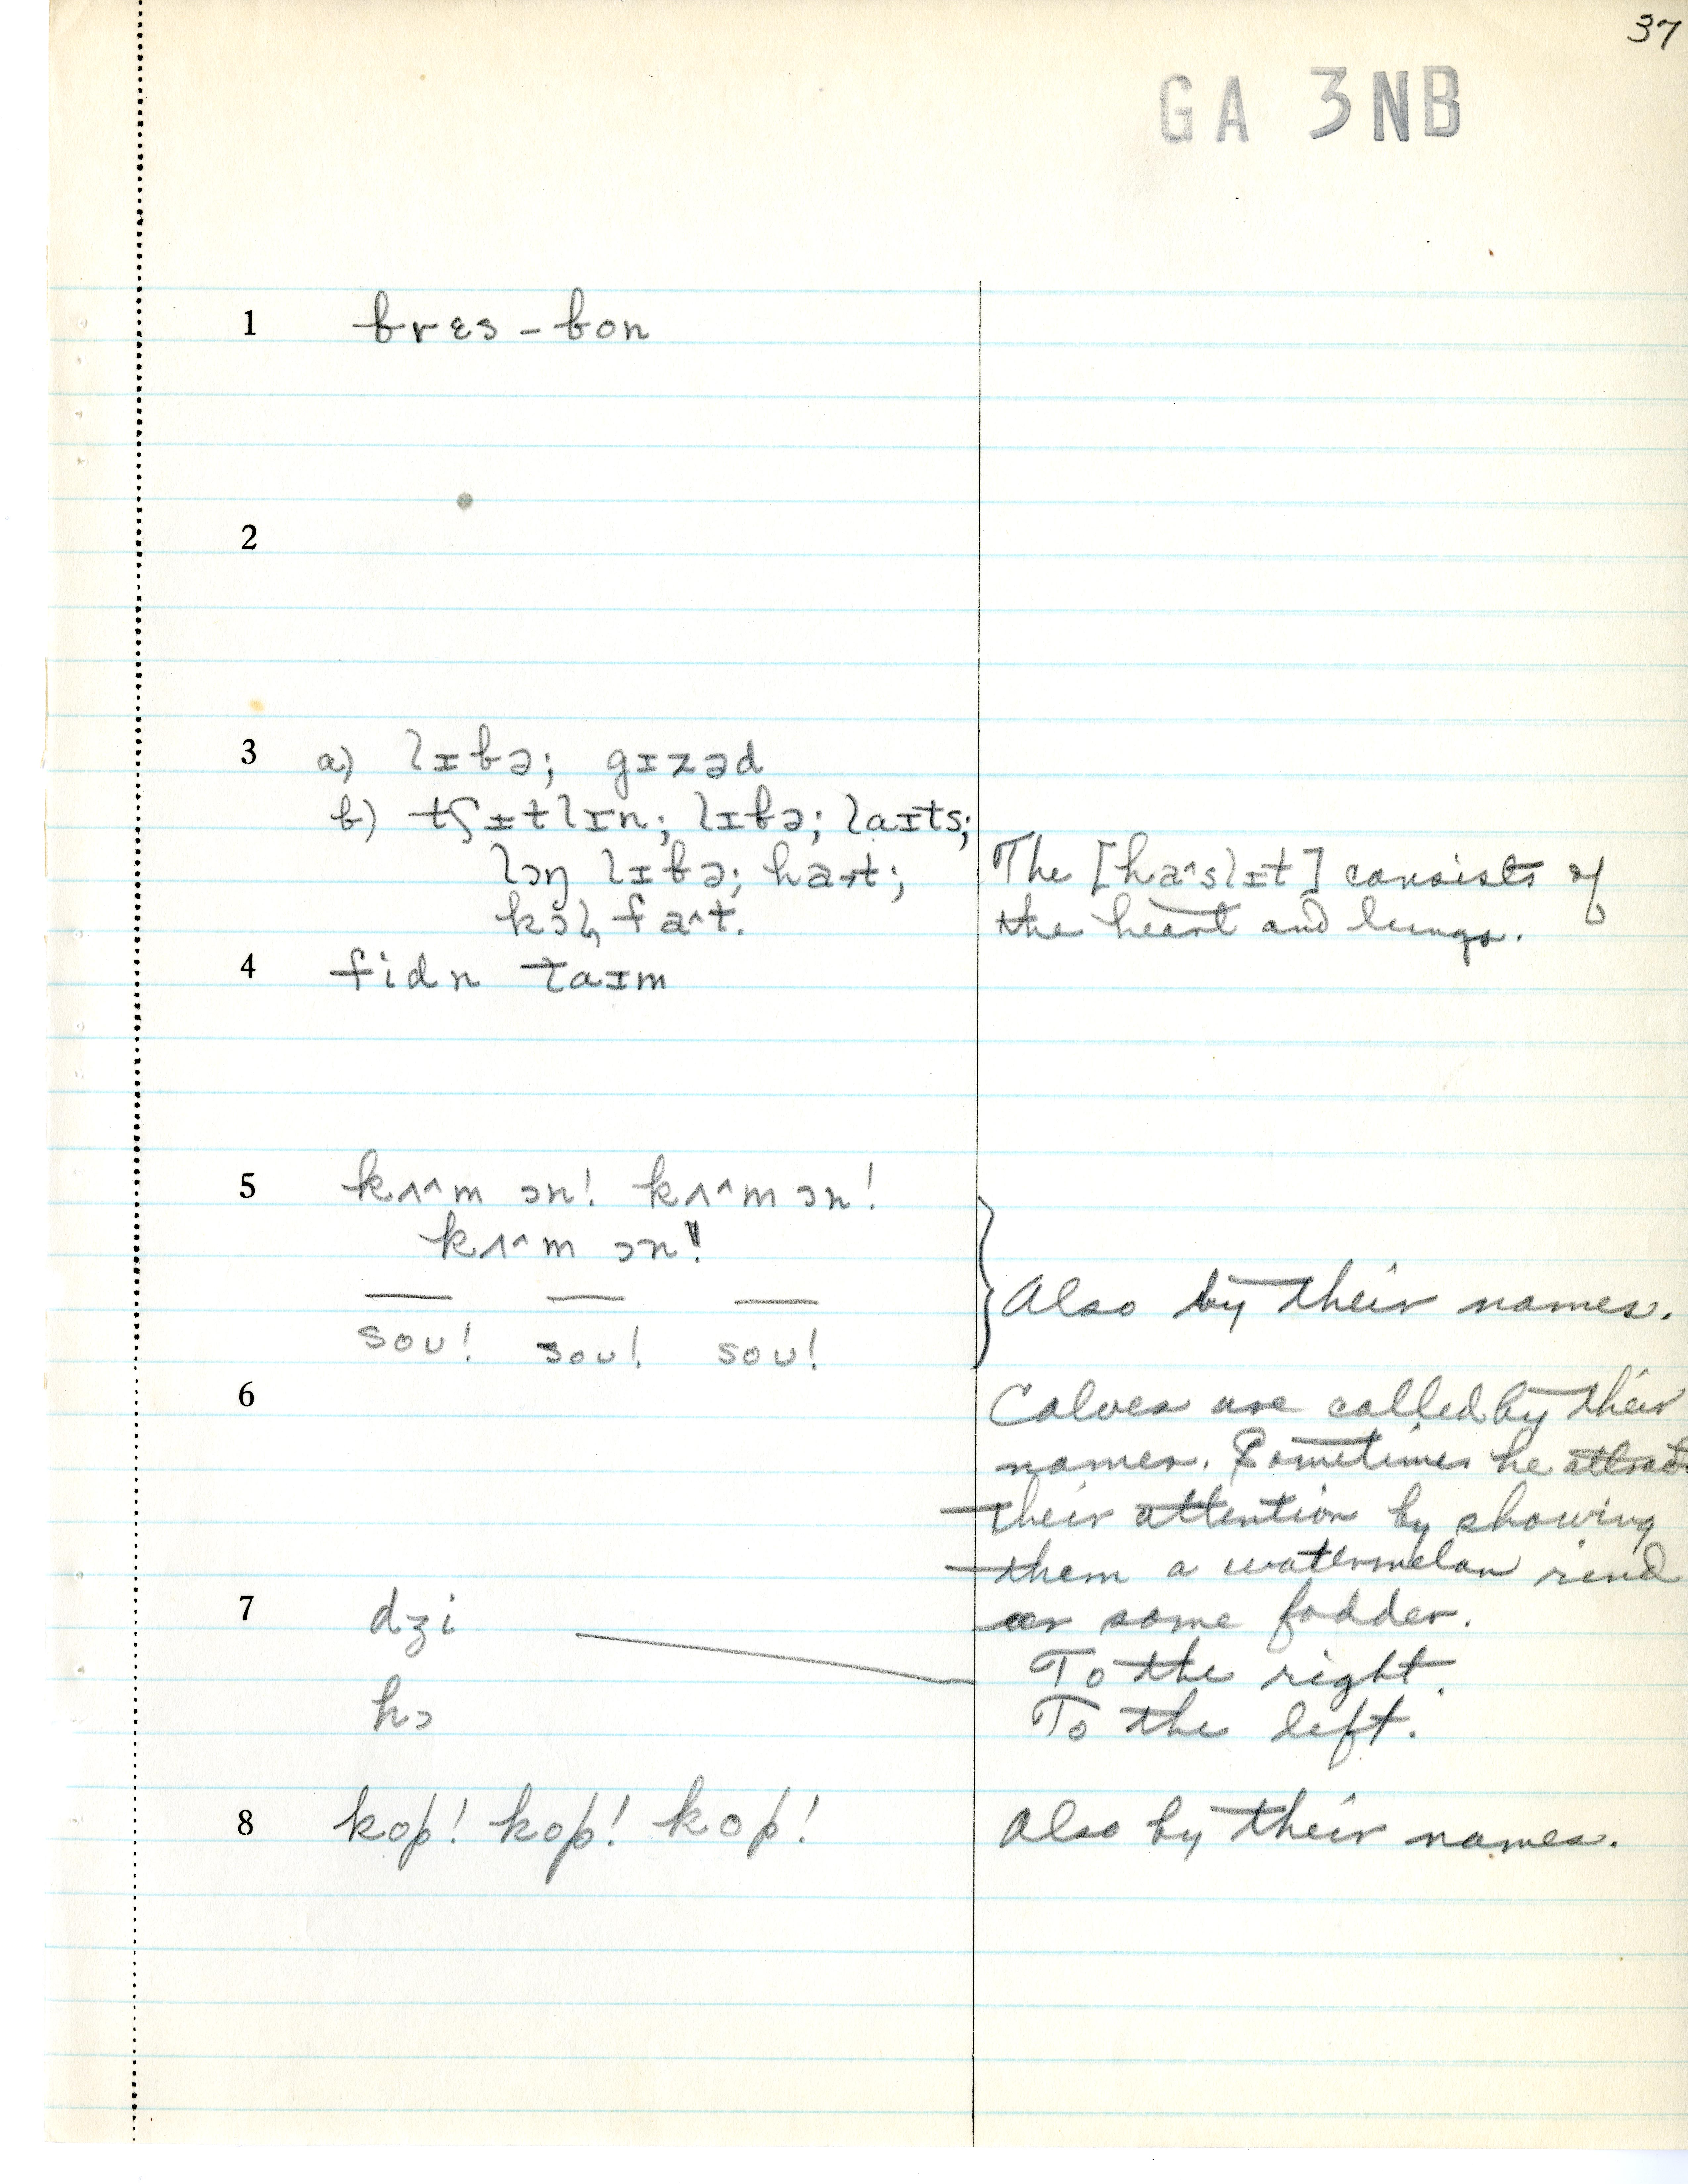 37
GA 3NB
1 brɛs-bon
2
3 a) lɪbə; gɪzəd
b) tʃɪtlɪn; lɪbə; laɪts;
lɔŋ lɪbə; hat;
fa^t.
The [ha^slɪt] consists of
the heart and lungs.
4 fidn taɪm
5 kʌ^m ɔn! kʌ^m ɔn!
kʌ^m ɔn!!
sou! sou! sou!
Also by their names.
6 Calves are called by their
names. Sometimes he attracts
their attention by showing
them a watermelon rind
or some fodder.
7 dʒi To the right.
hɔ To the left.
8 kop! kop! kop! Also by their names.